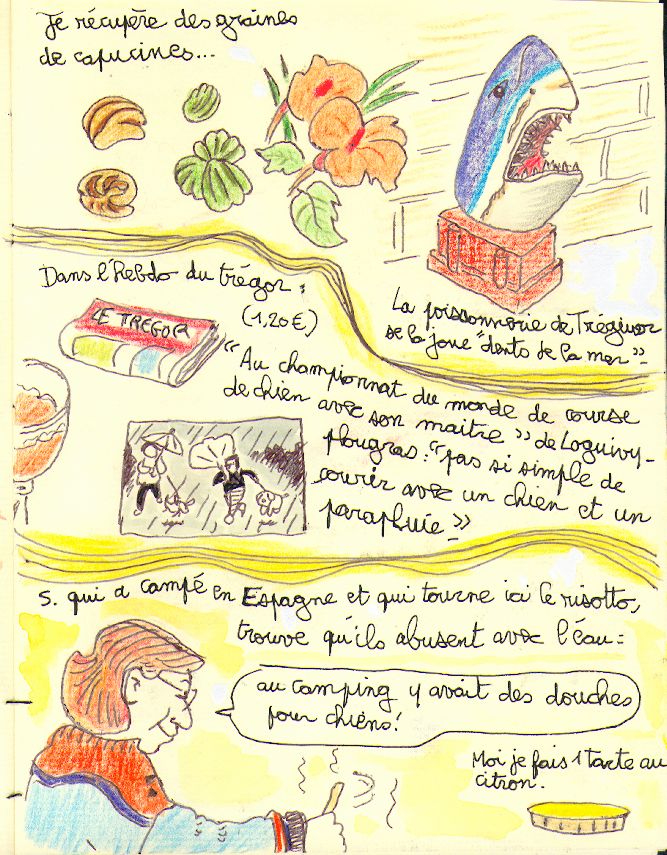 Je récupère des graines
de capucines...
La poissonnerie de Trégueor
se la joue "dents de la mer".
Dans l'Hebdo du trégor :
(1,20€)
LE TREGOR
"Au championnat du monde de course
de chien avec son maitre" de Loguivy-
plougras : "pas si simple de
courir avec un chien et un
parapluie"
S. qui a campé en Espagne et qui tourne ici le risotto,
trouve qu'ils abusent avec l'eau :
au camping y avait des douches
pour chiens !
Moi je fais 1 tarte au
citron.